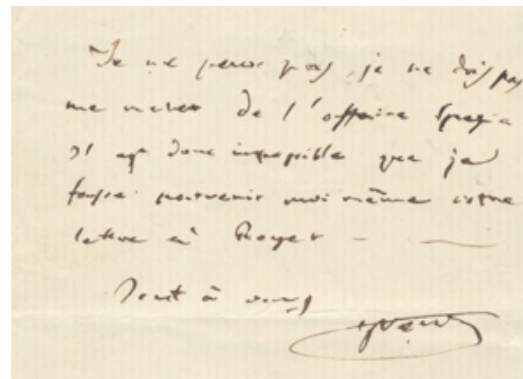 Je ne peux pas, je ne dois pas
me meler de l'affaire
Il est donc impossible que je
fasse parvenir moi même votre
lettre à Royer —
Tout à vous
GVerdi